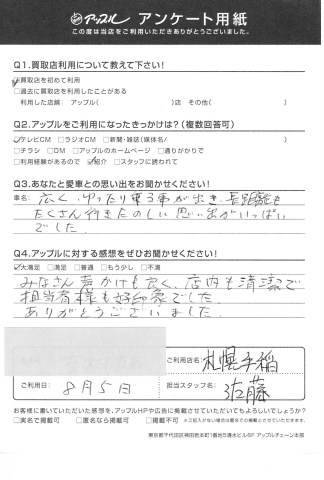 アップル アンケート用紙
この度は当店をご利用いただきありがとうございました。
Q1.買取店利用について教えて下さい!
☑買取店を初めて利用
□過去に買取店を利用したことがある
利用した店舗: アップル( )店 その他( )
Q2.アップルをご利用になったきっかけは?(複数回答可)
☑テレビCM □ラジオCM □新聞・雑誌(媒体名/ )
□チラシ □DM □アップルのホームページ □通りがかりで
□利用経験があるので ☑紹介 □スタッフに誘われて
Q3.あなたと愛車との思い出をお聞かせください!
車名: 広く、ゆったり乗る事が出き、長距離も
たくさん行きたのしい思い出がいっぱい
でした。
Q4.アップルに対する感想をぜひお聞かせください!
☑大満足 □満足 □普通 □もう少し □不満
みなさん声かけも良く、店内も清潔で
担当者様も好印象でした。
ありがとうございました。
ご利用店名: 札幌手稲
ご利用日: 8月5日 担当スタッフ名: 佐藤
お客様に書いていただいた感想を、アップルHPや広告に掲載させていただいてもよろしいでしょうか?
□実名で掲載可 □匿名なら掲載可 □掲載不可 ※ご記入がない場合は匿名での掲載とさせていただきます。
東京都千代田区神田岩本町1番地5清水ビル5F アップルチェーン本部